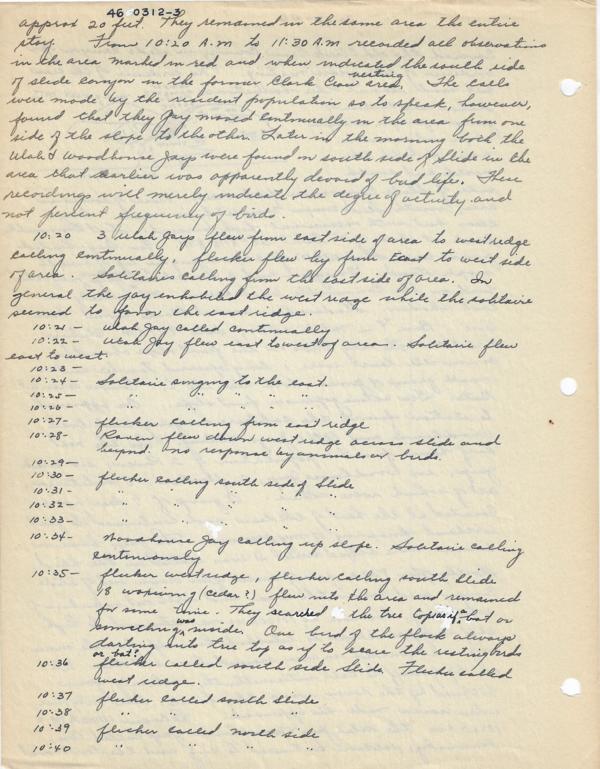 46 0312-3
approx 20 feet. They remained in the same area the entire
stay. From 10:20 A.M to 11:30 A.M recorded all observations
in the area marked in red and when indicated the south side
of slide canyon in the former Clark Crow nesting area. The calls
were made by the resident population so to speak, however,
found that they Jay moved continually in the area from one
side of the slope to the other. Later in the morning both the
Utah & Woodhouse Jays were found on south side of Slide in the
area that earlier was apparently devoid of bird life. These
recordings will merely indicate the degree of activity and
not percent frequency of birds.
10:20 3 Utah Jays flew from east side of area to west ridge
calling continually, flicker flew by from east to west side
of area. Solitaires calling from the east side of area. In
general the jay inhabited the west ridge while the solitaire
seemed to favor the east ridge.
10:21 - Utah Jay called continually
10:22 - Utah Jay flew east to west of area. Solitaire flew
east to west.
10:23 -
10:24 - Solitaire singing to the east.
10:25 - " " " " "
10:26 - " " " " "
10:27 - flicker calling from east ridge
10:28 - Raven flew down west ridge across slide and
beyond. no response by animals or birds.
10:29 -
10:30 - flicker calling south side of Slide
10:31 - " " " " "
10:32 - " " " " "
10:33 - " " " " "
10:34 - Woodhouse Jay calling up slope. Solitaire calling
continuously
10:35 - flicker west ridge, flicker calling south Slide
18 waxwing (cedar?) flew into the area and remained
for some time. They searched the tree tops as if a bat or
something was inside. One bird of the flock always
darting into tree top as if to scare the resting birds
or bat?
10:36 flicker called south side Slide. Flicker called
west ridge.
10:37 flicker called south Slide
10:38 " " " "
10:39 flicker called north side
10:40 " " " "